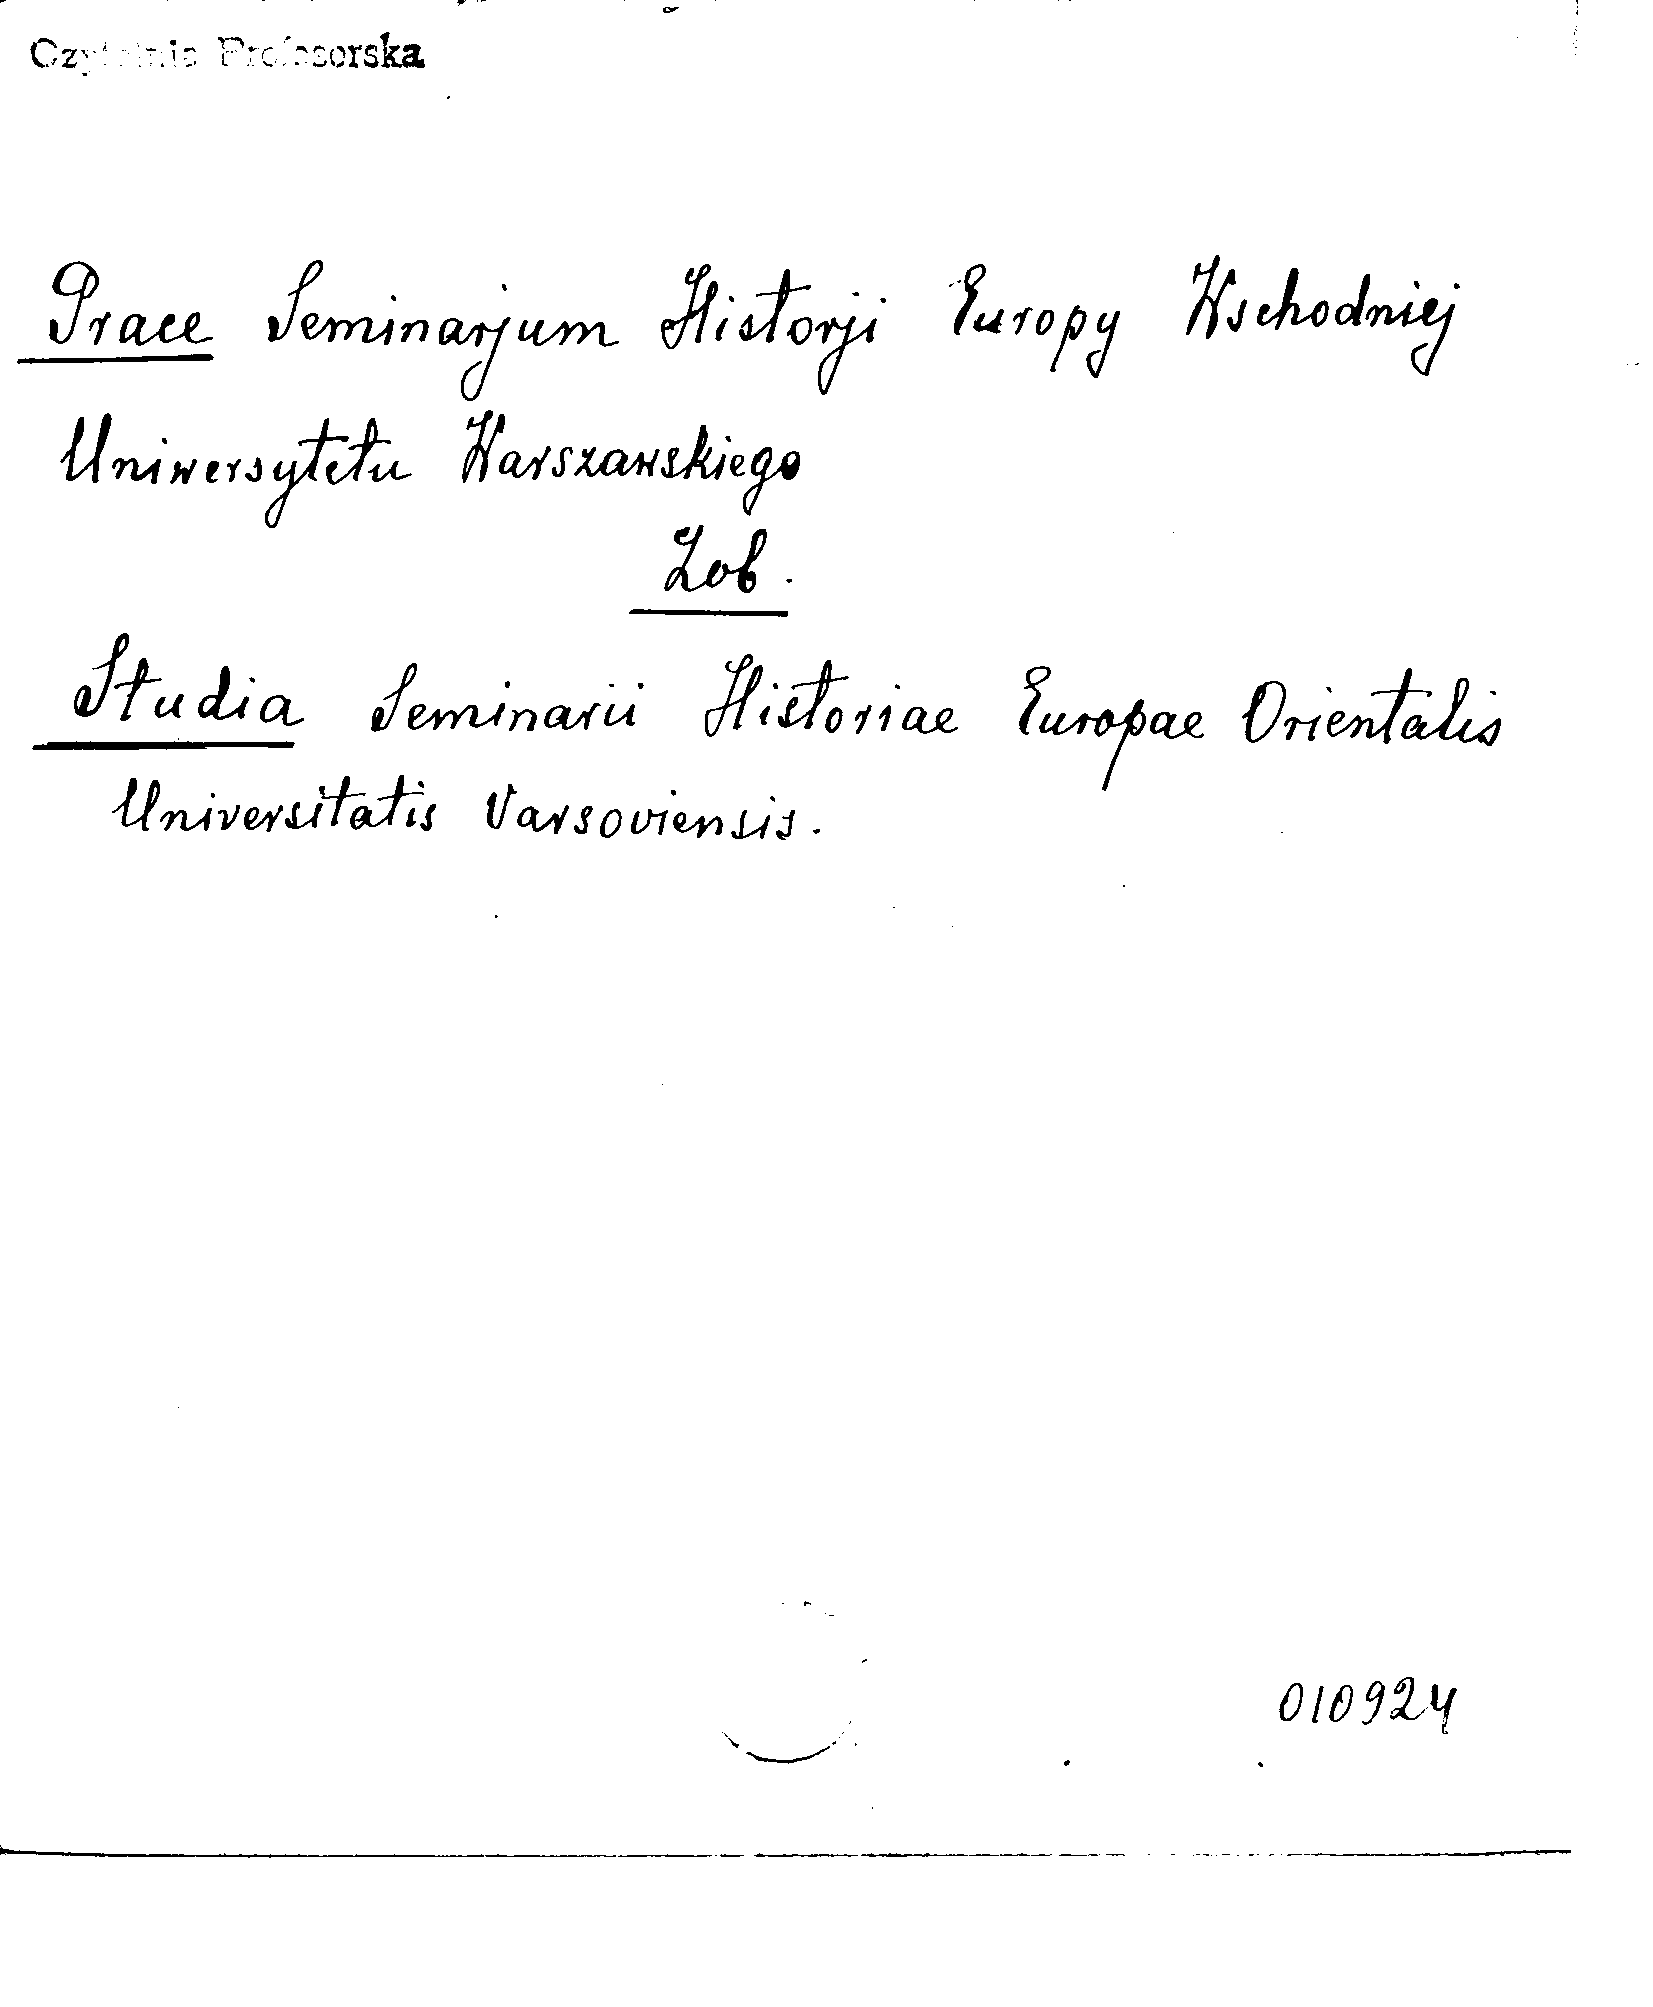 Czytelnia Profesorska
Prace Seminarjum Historji Europy Wschodniej
Uniwersytetu Warszawskiego
Zob.
Studia Seminarii Historiae Europae Orientalis
Universitatis Varsoviensis.
010924